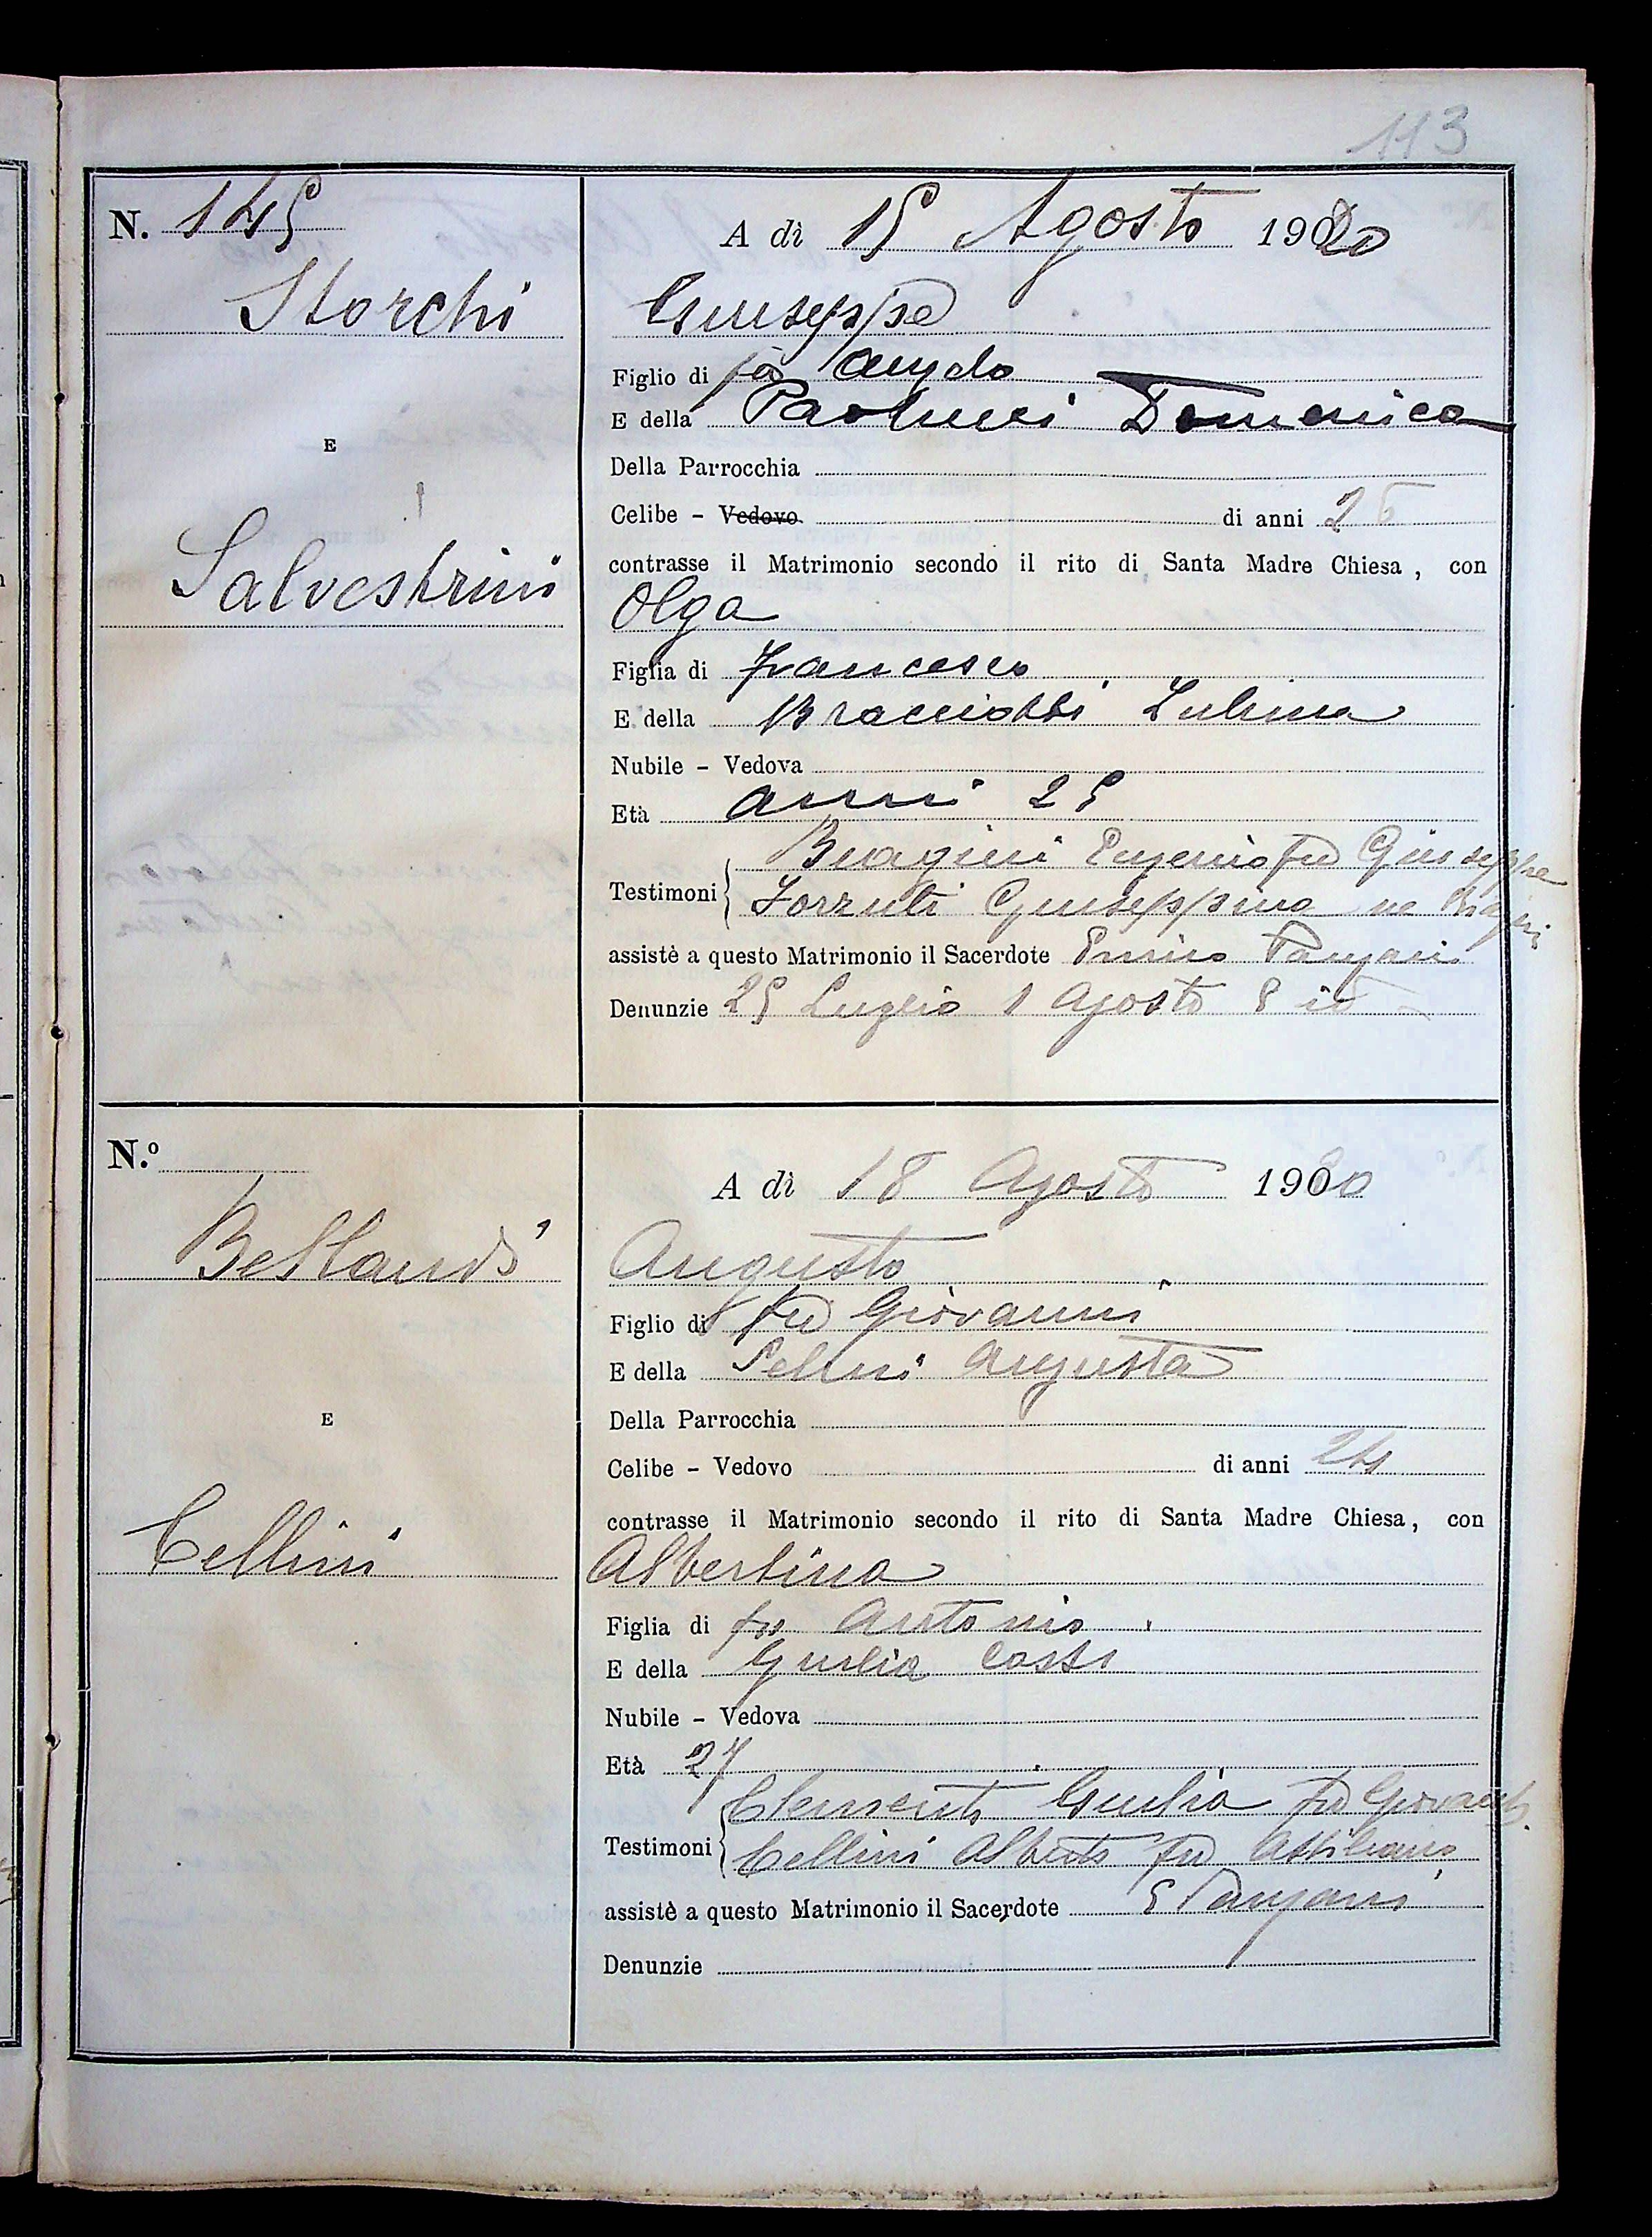 113
N. 145
A dì 15 Agosto 1920
Storchi
Giuseppe
Figlio di fu Angelo
E della Paolucci Domenica
E
Della Parrocchia
Celibe - Vedovo di anni 26
contrasse il Matrimonio secondo il rito di Santa Madre Chiesa, con
Salvestrini
Olga
Figlia di Francesco
E della Bracciotti
Nubile - Vedova
Età anni 25
Biagini Eugenio fu Giuseppe
Testimoni Zorzuti Giuseppina
assistè a questo Matrimonio il Sacerdote Enrico Panzani
Denunzie 25 Luglio 1 Agosto 8 id
N.º
A dì 18 Agosto 1900
Bellandi
Augusto
Figlio di fu Giovanni
E della Augusta
E
Della Parrocchia
Celibe - Vedovo di anni 24
contrasse il Matrimonio secondo il rito di Santa Madre Chiesa, con
Cellini
Albertina
Figlia di fu Antonio
E della Giulia
Nubile - Vedova
Età 27
Clementi Giulia fu Giovanni
Testimoni Cellini Alberto fu
assistè a questo Matrimonio il Sacerdote E Panzani
Denunzie